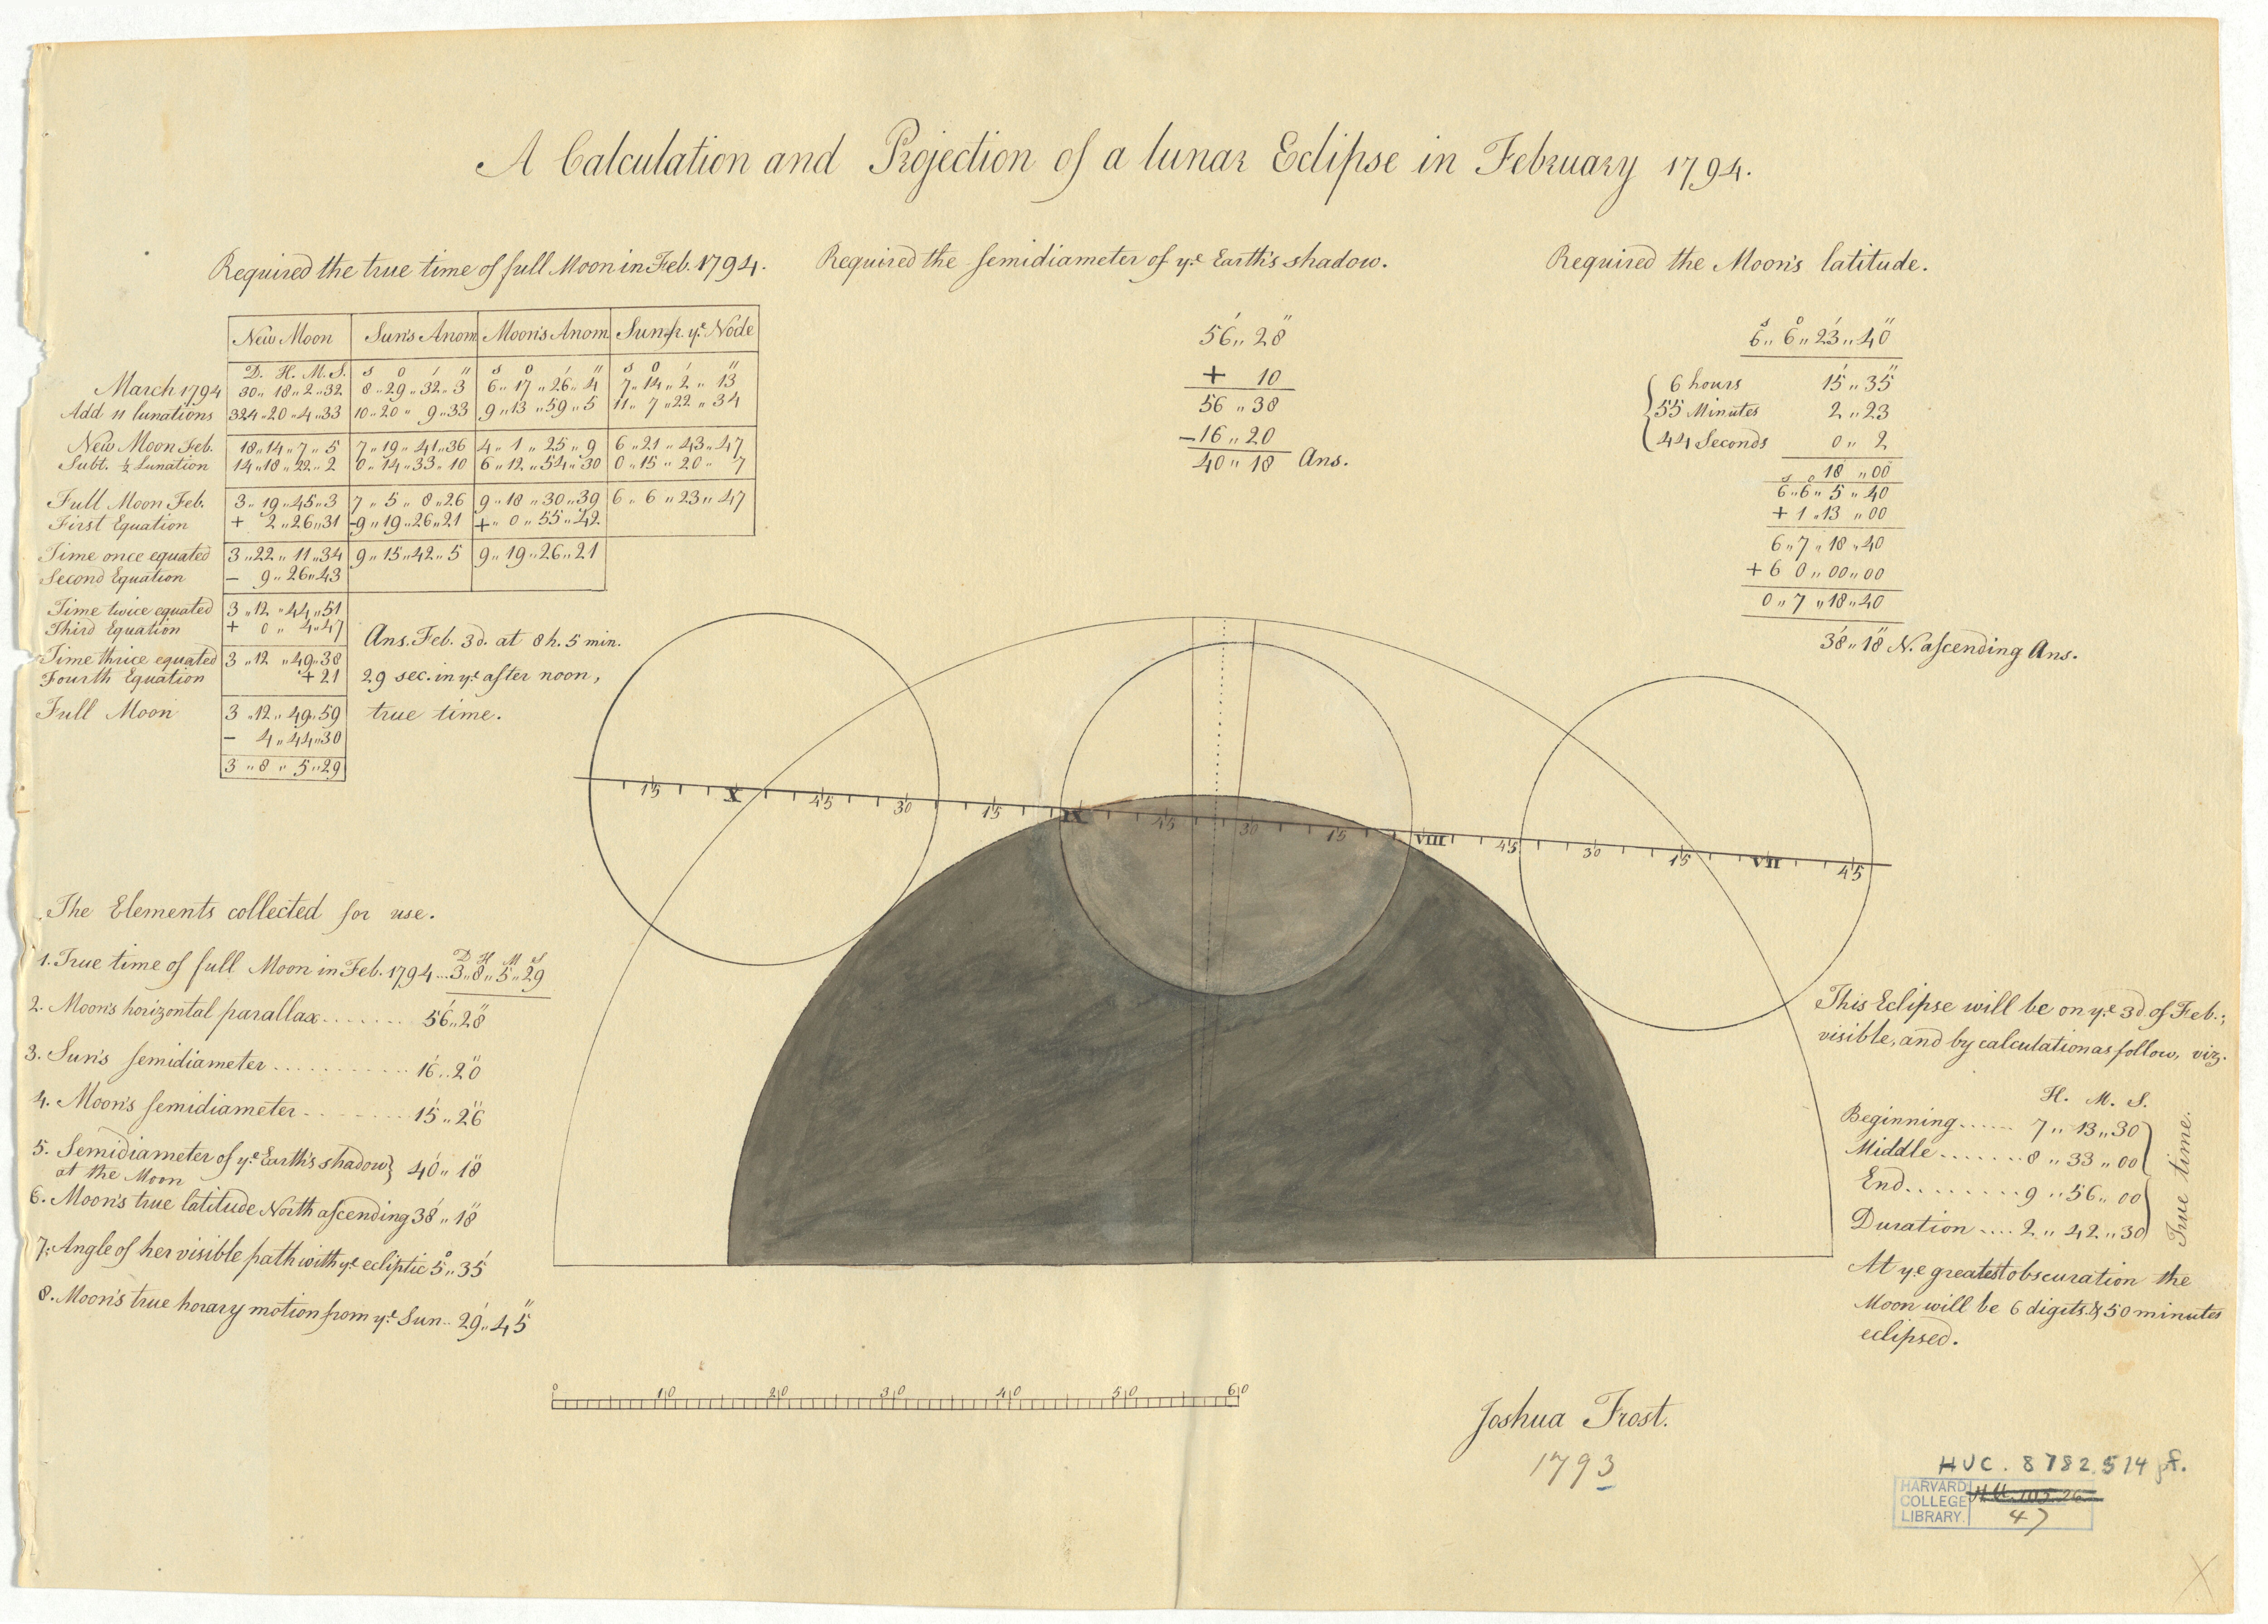 A Calculation and Projection of a lunar Eclipse in February 1794.
Required the true time of full Moon in Feb. 1794.
New Moon | Sun's Anom. | Moon's Anom. | Sun fr. ye. Node
D. H. M. S. | s o ' " | s o ' " | s o ' "
March 1794 | 30 18 2 32 | 8 29 32 3 | 6 17 26 4 | 7 14 2 13
Add 11 lunations | 324 20 4 33 | 10 20 9 33 | 9 13 59 5 | 11 7 22 34
New Moon Feb. | 18 14 7 5 | 7 19 41 36 | 4 1 25 9 | 6 21 43 47
Subt. ½ Lunation | 14 18 22 2 | 0 14 33 10 | 6 12 54 30 | 0 15 20 7
Full Moon Feb. | 3 19 45 3 | 7 5 8 26 | 9 18 30 39 | 6 6 23 47
First Equation | + 2 26 31 | -9 19 26 21 | + 0 55 42
Time once equated | 3 22 11 34 | 9 15 42 5 | 9 19 26 21
Second Equation | - 9 26 43
Time twice equated | 3 12 44 51
Third Equation | + 0 4 47
Time thrice equated | 3 12 49 38
Fourth Equation | +21
Full Moon | 3 12 49 59
- 4 44 30
3 8 5 29
Ans. Feb. 3d. at 8h. 5 min.
29 sec. in ye. after noon,
true time.
Required the semidiameter of ye. Earth's shadow.
56' 28"
+ 10
56 38
-16 20
40 18 Ans.
Required the Moon's latitude.
s o ' "
6 6 23 40
6 hours 15' 35"
55 Minutes 2 23
44 Seconds 0 2
18 00
s o
6 6 5 40
+ 1 13 00
6 7 18 40
+ 6 0 00 00
0 7 18 40
38' 18" N. ascending Ans.
15 X 45 30 15 IX 45 30 15 VIII 45 30 15 VII 45
The Elements collected for use.
D H M S
1. True time of full Moon in Feb. 1794 ... 3 8 5 29
2. Moon's horizontal parallax....... 56' 28"
3. Sun's semidiameter ........... 16 20"
4. Moon's semidiameter ........ 15' 26"
5. Semidiameter of ye. Earth's shadow
at the Moon } 40' 18"
6. Moon's true latitude North ascending 38' 18"
7. Angle of her visible path with ye. ecliptic 5° 35'
8. Moon's true horary motion from ye. Sun.. 29' 45"
This Eclipse will be on ye. 3d of Feb.;
visible, and by calculation as follow, viz.
H. M. S.
Beginning...... 7 13 30
Middle ....... 8 33 00
End......... 9 56 00
Duration .... 2 42 30
True time.
At ye greatest obscuration the
Moon will be 6 digits & 50 minutes
eclipsed.
0 10 20 30 40 50 60
Joshua Frost.
1793
HUC. 8782.514 f.
HARVARD
COLLEGE
LIBRARY.
47